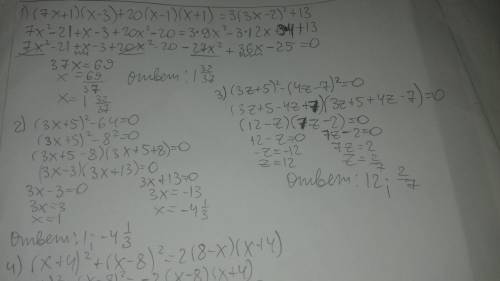 1) (7x+1)(x-3)+20(x-1)(x+1)=3(3x-2)²+13
7x²-21+x-3+20x²-20=3·9x²-3·12x+ +13
7x²-21+x-3+20x²-20-27x²+36x-25=0
37x=69
x=69/37
x=1 32/37
ответ: 1 32/37
2) (3x+5)²-64=0
(3x+5)²-8²=0
(3x+5-8)(3x+5+8)=0
(3x-3)(3x+13)=0
3x-3=0 3x+13=0
3x=3 3x=-13
x=1 x=-4 1/3
ответ: 1; -4 1/3
3) (3z+5)²-(4z-7)²=0
(3z+5-4z+7)(3z+5+4z-7)=0
(12-z)(7z-2)=0
12-z=0 7z-2=0
-z=-12 7z=2
z=12 z=2/7
ответ: 12; 2/7
4) (x+4)²+(x-8)²=2(8-x)(x+4)
(x-8)²=-2(x-8)(x+4)